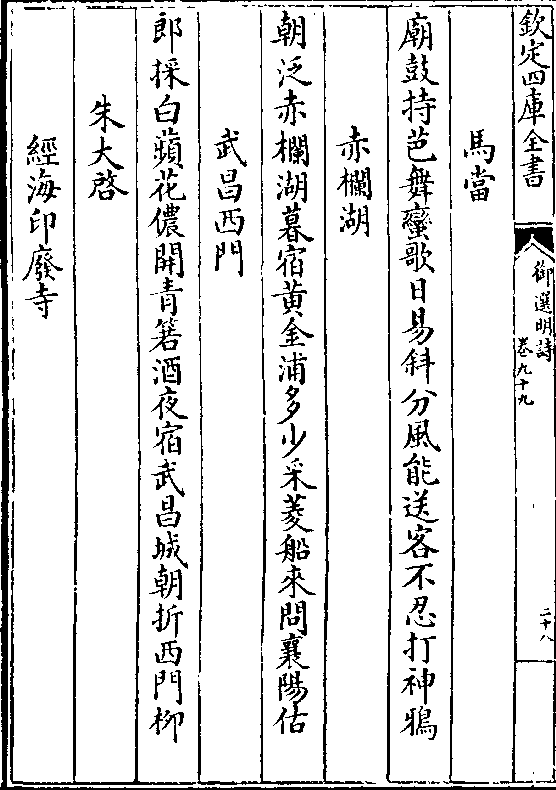 欽定四庫全書
御選明詩
卷九十九
二十八
馬當
廟鼓持芭舞蠻歌日易斜分風能送客不忍打神鴉
赤欄湖
朝泛赤欄湖暮宿黄金浦多少采菱船來問襄陽估
武昌西門
郎採白蘋花儂開青箬酒夜宿武昌城朝折西門柳
朱大啓
經海印廢寺